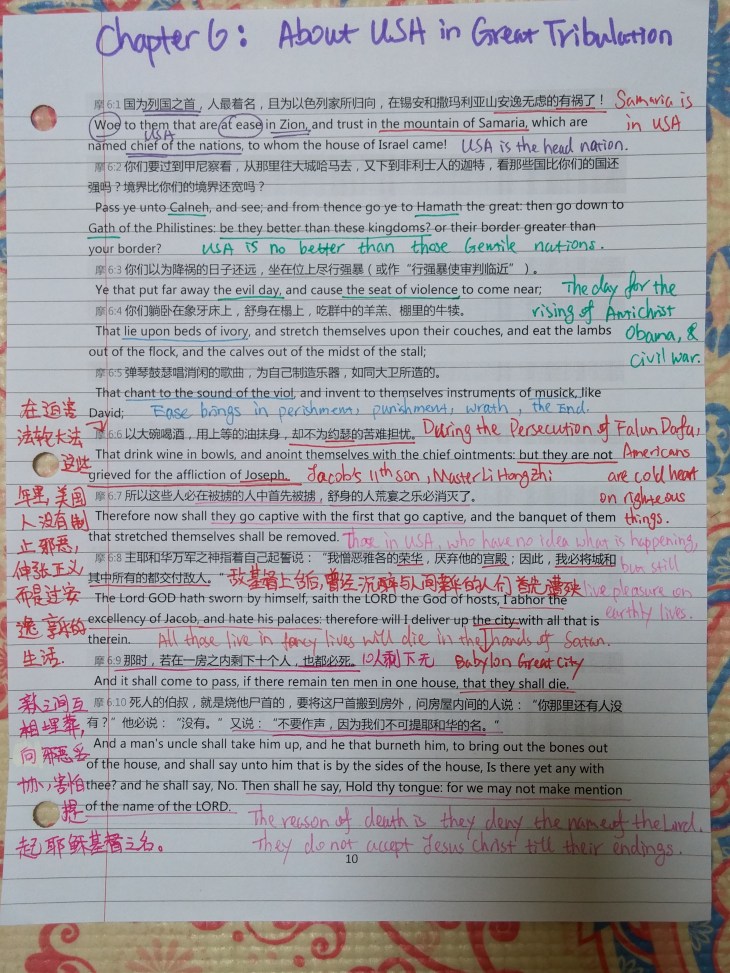 Chapter 6: About USA in Great Tribulation
摩 6:1 国为列国之首，人最着名，且为以色列家所归向，在锡安和撒玛利亚山安逸无虑的有祸了！ Samaria is
Woe to them that are at ease in Zion, and trust in the mountain of Samaria, which are in USA
USA
named chief of the nations, to whom the house of Israel came! USA is the head nation.
摩 6:2 你们要过到甲尼察看，从那里往大城哈马去，又下到非利士人的迦特，看那些国比你们的国还
强吗？境界比你们的境界还宽吗？
Pass ye unto Calneh, and see; and from thence go ye to Hamath the great: then go down to
Gath of the Philistines: be they better than these kingdoms? or their border greater than
your border? USA is no better than those Gentile nations.
摩 6:3 你们以为降祸的日子还远，坐在位上尽行强暴（或作“行强暴使审判临近”）。
Ye that put far away the evil day, and cause the seat of violence to come near; The day for the
摩 6:4 你们躺卧在象牙床上，舒身在榻上，吃群中的羊羔、棚里的牛犊。 rising of Antichrist
That lie upon beds of ivory, and stretch themselves upon their couches, and eat the lambs Obama, &
out of the flock, and the calves out of the midst of the stall; civil war.
摩 6:5 弹琴鼓瑟唱消闲的歌曲，为自己制造乐器，如同大卫所造的。
That chant to the sound of the viol, and invent to themselves instruments of musick, like
David; Ease brings in perishment, punishment, wrath, the End.
在迫害
法轮大法
这些
年里，美国
人没有制
止邪恶，
伸张正义
而是过安
逸享乐的
生活.
摩 6:6 以大碗喝酒，用上等的油抹身，却不为约瑟的苦难担忧。 During the Persecution of Falun Dafa,
That drink wine in bowls, and anoint themselves with the chief ointments: but they are not Americans
grieved for the affliction of Joseph. Jacob's 11th son, Master Li Hongzhi are cold heart
摩 6:7 所以这些人必在被掳的人中首先被掳，舒身的人荒宴之乐必消灭了。 on righteous
Therefore now shall they go captive with the first that go captive, and the banquet of them things.
that stretched themselves shall be removed. Those in USA, who have no idea what is happening,
摩 6:8 主耶和华万军之神指着自己起誓说：“我憎恶雅各的荣华，厌弃他的宫殿；因此，我必将城和 but still
其中所有的都交付敌人。” 敌基督上台后，曾经沉醉与人间享乐的人们首先遭殃 live pleasure on
The Lord GOD hath sworn by himself, saith the LORD the God of hosts, I abhor the earthly lives.
excellency of Jacob, and hate his palaces: therefore will I deliver up the city with all that is
therein. All those live in fancy lives will die in the hands of Satan.
摩 6:9 那时，若在一房之内剩下十个人，也都必死。 10人剩下无 Babylon Great City
And it shall come to pass, if there remain ten men in one house, that they shall die.
摩 6:10 死人的伯叔，就是烧他尸首的，要将这尸首搬到房外，问房屋内间的人说：“你那里还有人没
有？”他必说：“没有。”又说：“不要作声，因为我们不可提耶和华的名。”
And a man's uncle shall take him up, and he that burneth him, to bring out the bones out
of the house, and shall say unto him that is by the sides of the house, Is there yet any with
thee? and he shall say, No. Then shall he say, Hold thy tongue: for we may not make mention
of the name of the LORD.
之间互
相埋葬，
向邪恶妥
协，害怕
提
起耶稣基督之名。
The reason of death is they deny the name of the Lord.
They do not accept Jesus Christ till their endings.
10